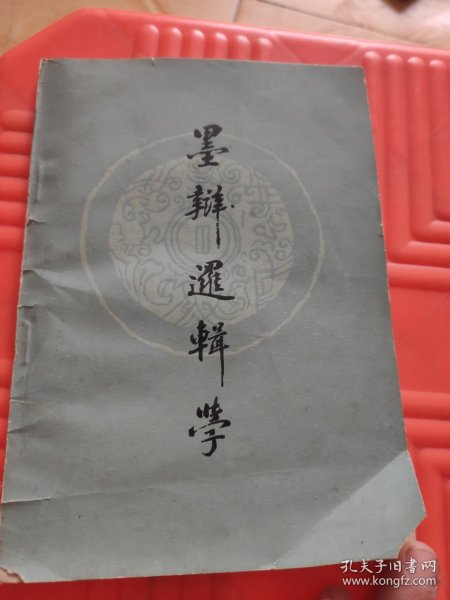 墨辩邏輯學
孔夫子旧书网
www.kongfz.com